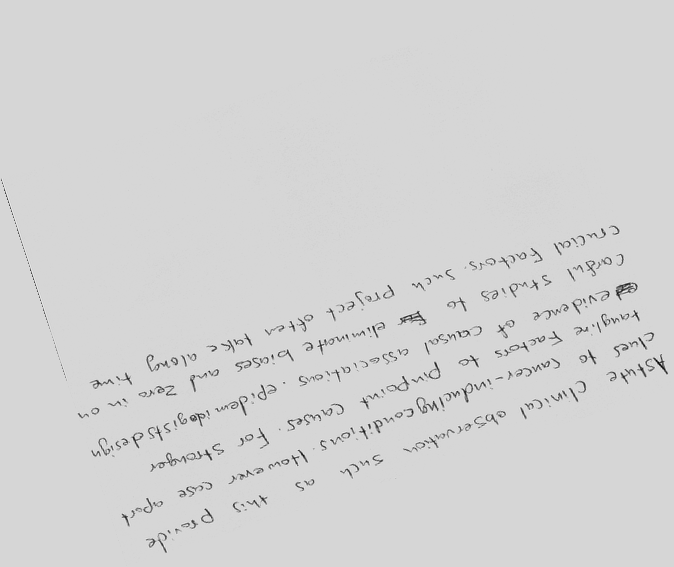 Astute clinical observation such as this provide
clues to cancer-inducing conditions. However case aport
factors to pinpoint causes. For stronger
evidence of causal associations. epidemidogists design
carful studies to eliminate biases and zero in on
crucial factors. such project often take along time